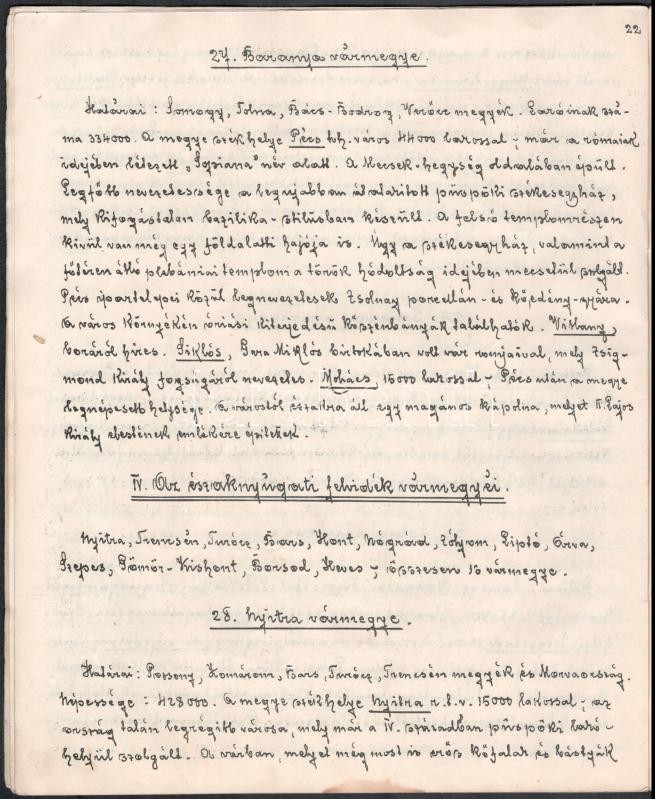 22
27. Baranya vármegye.
Határai: Somogy, Tolna, Bács-Bodrog, Verőce megyék. Lakóinak szá-
ma 334000. A megye székhelye Pécs thj. város 44000 lakossal; már a rómaiak
idejében létezett „Sopiana" név alatt. A Mecsek-hegység oldalában épült.
Legfőbb nevezetessége a legújabban átalakított püspöki székesegyház,
mely kifogástalan bazilika-stílusban készült. A felső templomrészen
kívül van még egy földalatti hajója is. Úgy a székesegyház, valamint a
főtéren álló plébániai templom a török hódoltság idejében mecsetül szolgált.
Pécs ipartelepei közül legnevezetesebb Zsolnay porcellán- és kőedény-gyára.
A város környékén óriási kiterjedésű kőszénbányák találhatók. Villány,
boráról híres. Siklós, Gara Miklós birtokában volt vár romjaival, mely Zsig-
mond király fogságáról nevezetes. Mohács, 15000 lakossal; Pécs után a megye
legnépesebb helysége. A várostól északra áll egy magános kápolna, melyet II. Lajos
király elestének emlékére építettek.
IV. Az északnyugati felvidék vármegyéi.
Nyitra, Trencsén, Turócz, Bars, Hont, Nógrád, Zólyom, Liptó, Árva,
Szepes, Gömör-Kishont, Borsod, Heves; összesen 13 vármegye.
28. Nyitra vármegye.
Határai: Pozsony, Komárom, Bars, Turócz, Trencsén megyék és Morvaország.
Népessége: 428000. A megye székhelye Nyitra r.t.v. 15000 lakossal; az
ország talán legrégibb városa, mely már a IV. században püspöki lakó-
helyül szolgált. A várban, melyet még most is erős kőfalak és bástyák